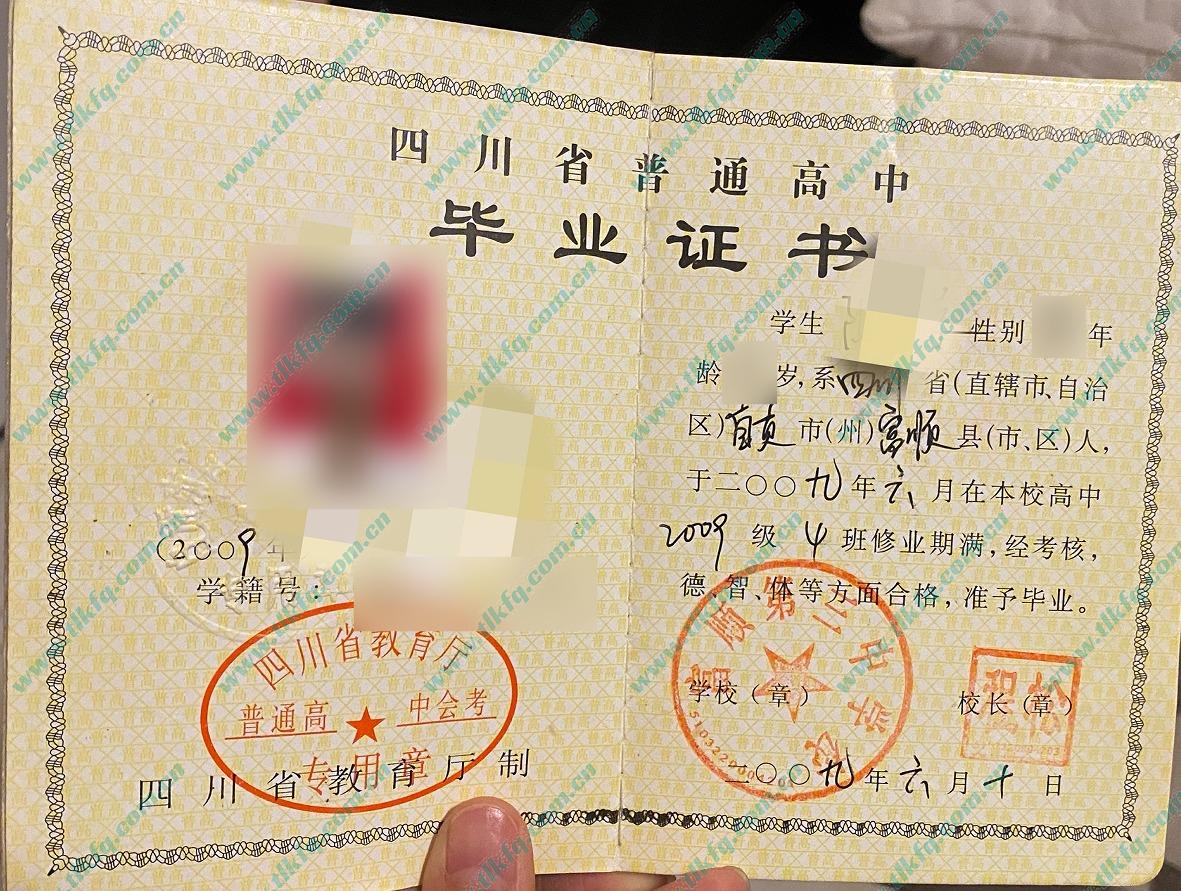 四川省普通高中
毕业证书
(2009年
学籍号:
四川省教育厅
普通高 中会考
专用章
四川省教育厅制
学生 性别 年
龄 岁,系四川省(直辖市、自治
区)自贡市(州)富顺县(市、区)人,
于二〇〇九年六月在本校高中
2009级4班修业期满,经考核,
德、智、体等方面合格,准予毕业。
富顺第二中学校
学校(章) 校长(章)
二〇〇九年六月十日
www.tlkfq.com.cn